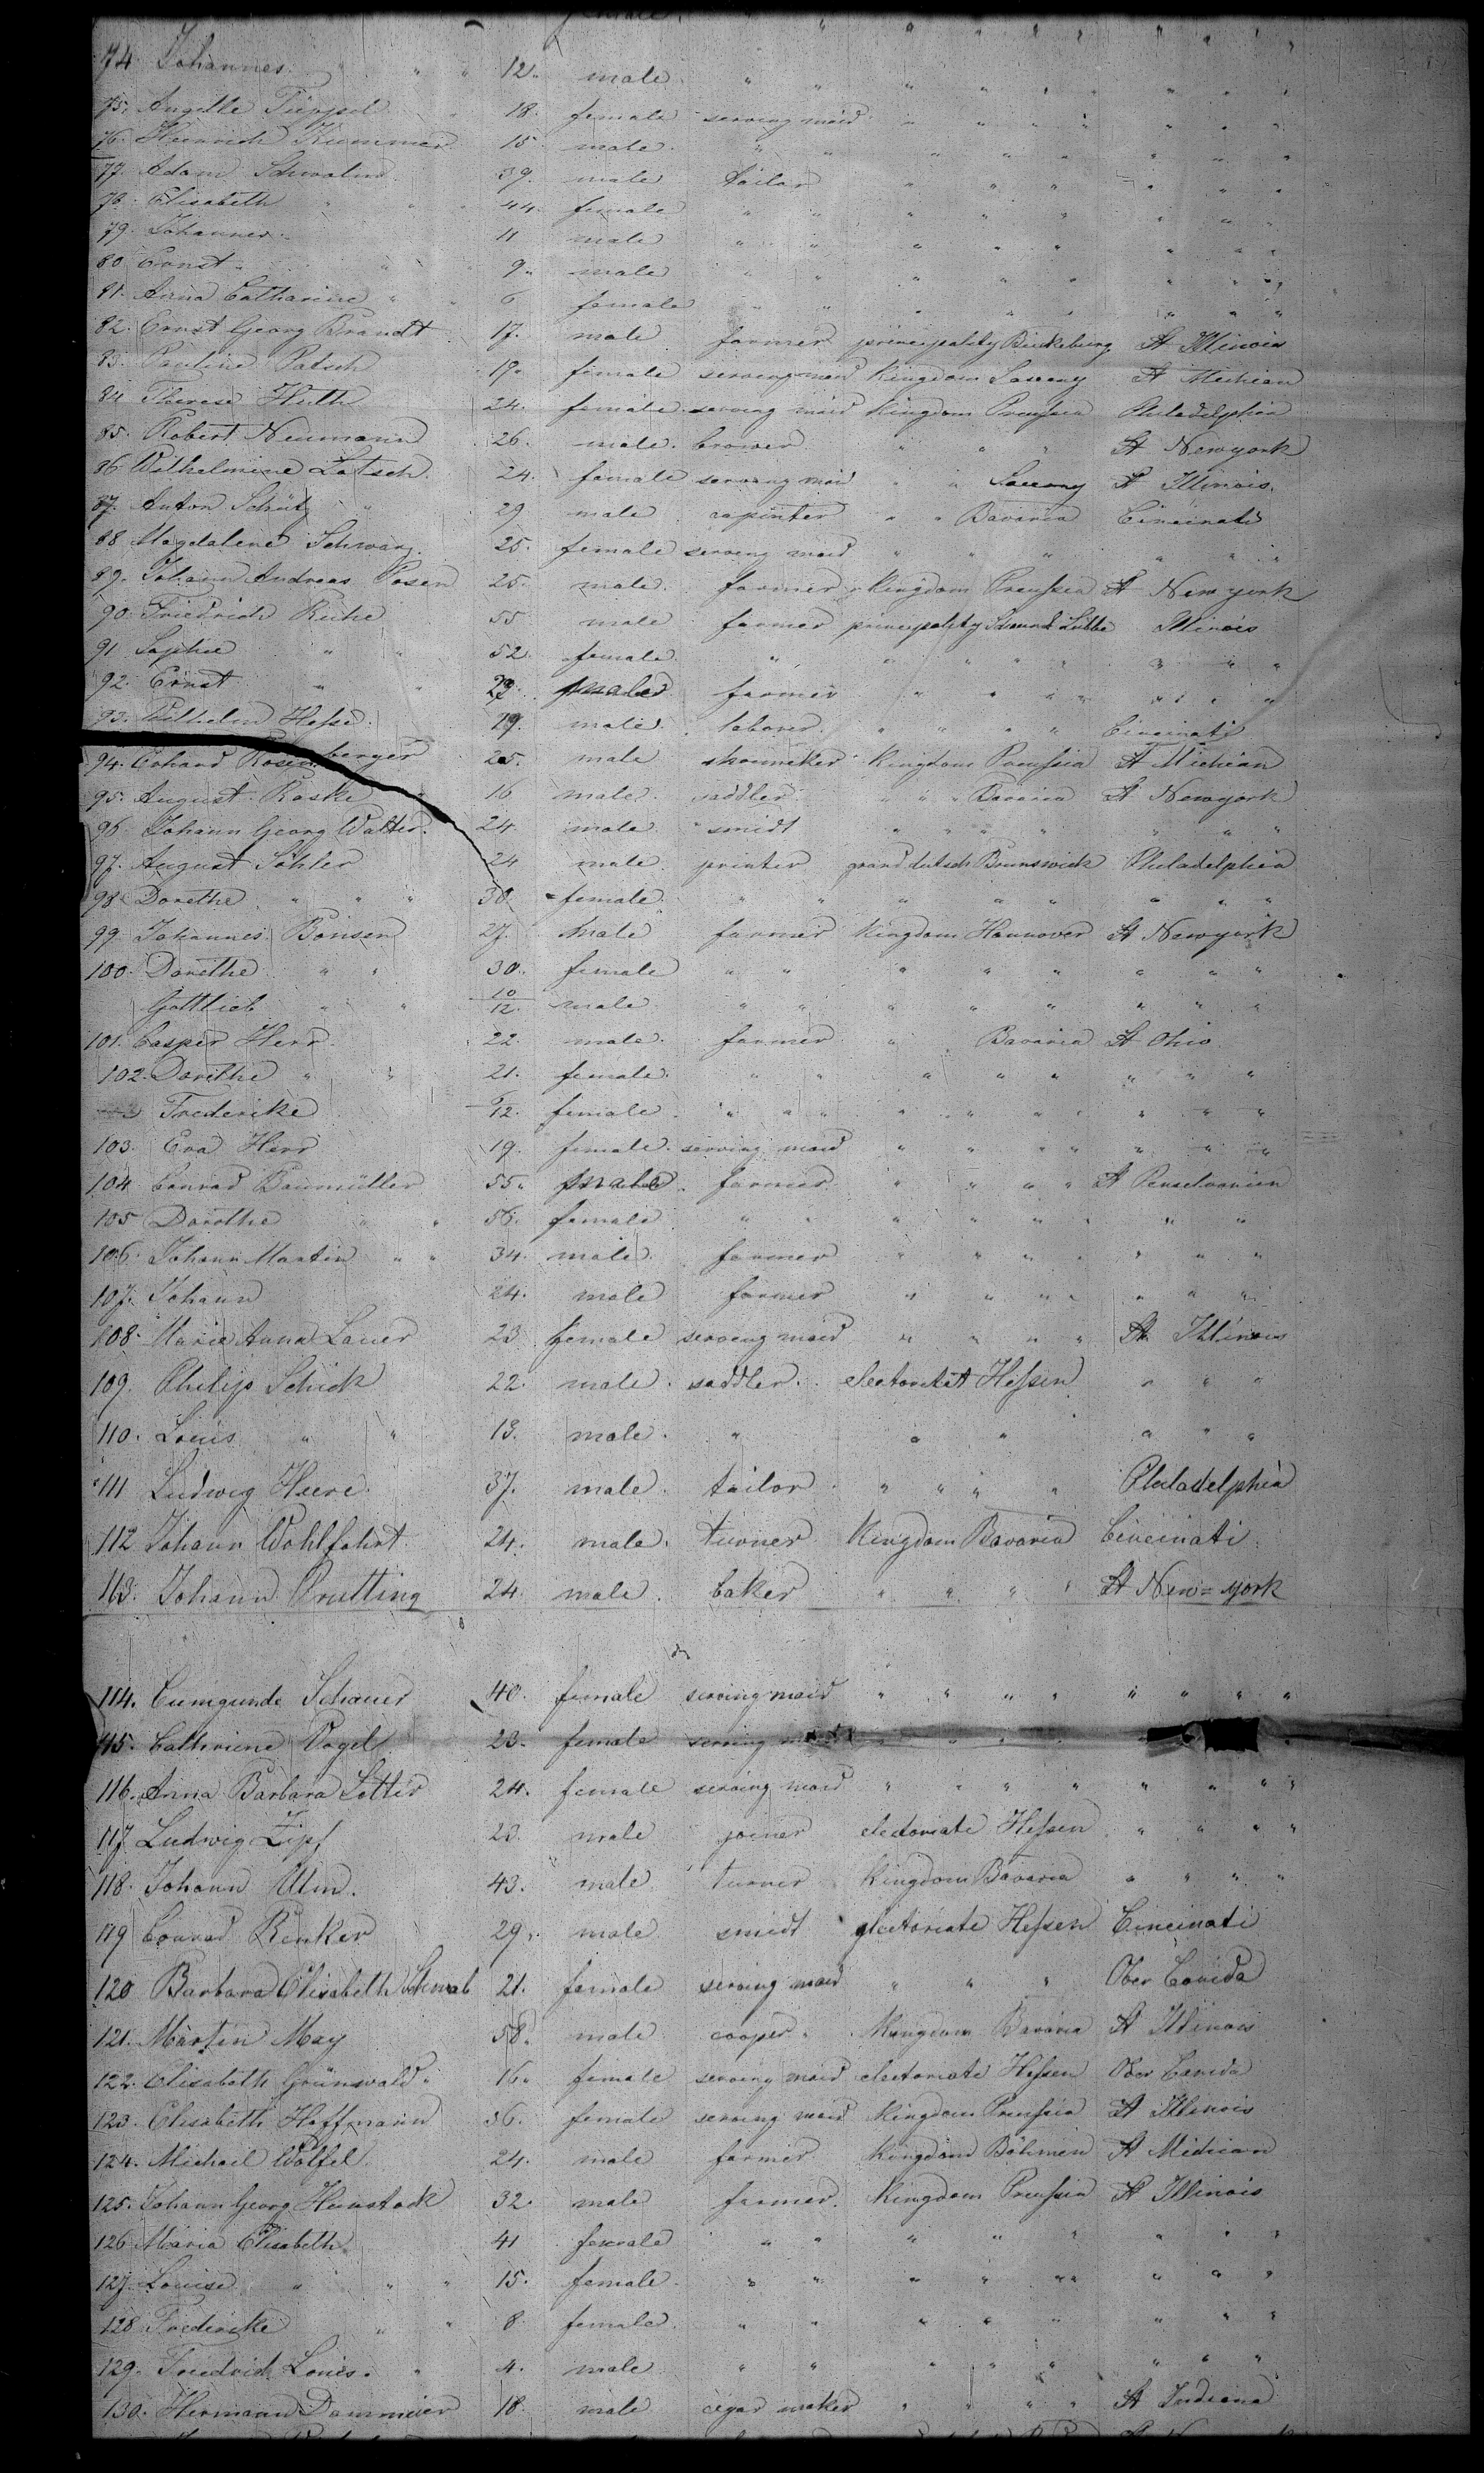 female " " " " " " "
74. Johannes " " " 12. male " " " " " " " " "
75. Angelle Tüppel 18. female serving maid " " " " " " "
76. Heinrich Kummer 15 male. " " " " " " " "
77. Adam Schwalm 39. male tailor " " " " " "
78. Elisabeth " " " 44. female " " " " " " " "
79. Johannes " 11 male " " " " " " " "
80. Ernst " " " 9. male " " " " " " " "
81. Anna Catharine " " 6 female " " " " " " " "
82. Ernst Georg Brandt 17. male farmer principality Bückeburg St Illinois
83. Pauline Patsch 19. female serving maid Kingdom Saxony St Michian
84 Therese Huth 24. female serving maid Kingdom Preußia Philadelphia
85. Robert Neumann 26. male. brower " " " St Newyork
86 Wilhelmine Latsch. 24. female serving maid " " Saxony St Illinois.
87. Anton Schütz " 29 male capinter " " Bavaria Cincinati
88 Magdalene Schwarz. 25. female serving maid " " " " " "
89. Johann Andreas Posen 25. male. farmer Kingdom Preußia St New york
90. Friedrich Ruhe 55 male farmer principality Schaumb Lübbe Illinois
91 Sophie " " 52. female. " " " " " " " "
92. Ernst " " 23. male farmer " " " " " " "
93. Wilhelm Heße. 19. male. laborer. " " " " Cincinati
94. Erhard Rosenberger 25. male shoumeker Kingdom Preußia St Michian
95. August Raske 16 male. saddler " " " Bavaria St Newyork
96. Johann Georg Walter. 24 male. smidt " " " " " " "
97. August Söhler 24 male. printer grand dutsch Brunswick Philadelphia
98 Dorethe " " " 30. female. " " " " " " " "
99. Johannes Bönsen 27. male farmer Kingdom Hannover St Newyork
100. Dorethe " " 30. female " " " " " " " "
Gottlieb " " 10/12. male " " " " " " " "
101. Casper Herr 22. male. farmer " Bavaria St Ohio.
102. Dorethe " " 21. female. " " " " " " " "
Frederike /12. female. " " " " " " " " "
103. Eva Herr 19. female. serving maid " " " " " " "
104 Conrad Baumüller 55. male. farmer. " " " " St Penselvanien
105 Dorothe " " 56. female " " " " " " " "
106. Johann Martin " " 34. male. farmer " " " " " " "
107. Johann 24. male farmer " " " " " " "
108. Marie Anna Lauer 23 female serveng maid " " " " St Illinois
109. Philip Schick 22. male. saddler. electoritat Heßen " " "
110. Louis " " 13. male. " " " " " "
111 Ludwig Heere. 37. male. tailor " " " " Philadelphia
112 Johann Wohlfahrt 24. male. turner Kingdom Bavaria Cincinati.
113. Johann Prutting 24. male. baker " " " " St New=york
114. Cunigunde Schauer 40. female serving maid " " " " " " " "
115. Cathriene Vogel 23. female serving maid " " " " "
116. Anna Barbara Lotter 24. female serving maid " " " " " " " "
117. Ludwig Zipf 23. male joiner electoriate Heßen " " " "
118. Johann Ulm. 43. male turner Kingdom Bavaria " " " "
119 Conrad Renker 29. male smidt electoriate Heßen Cincinati
120 Barbara Elisabeth Schwab 21. female serving maid " " " Ober Canida
121. Martin May 58. male cooper. Kingdom Bavaria St Illinois
122. Elisabeth Grünwald. 16. female serving maid electoriate Heßen Ober Canida
123. Elisabeth Hoffmann 36. female serving maid Kingdom Preußia St Illinois
124. Michael Wölfel. 24. male farmer Kingdom Böhmen St Michian
125. Johann Georg Hunstock 32. male farmer. Kingdom Preußia St Illinois
126 Maria Elisabeth 41 female " " " " " " " "
127. Louise " " " 15. female. " " " " " " " "
128 Frederike " " 8. female. " " " " " " " "
129. Friedrich Louis. " 4. male " " " " " " " "
130. Hermann Dammeier 18. male cigar maker " " " " St Indiana